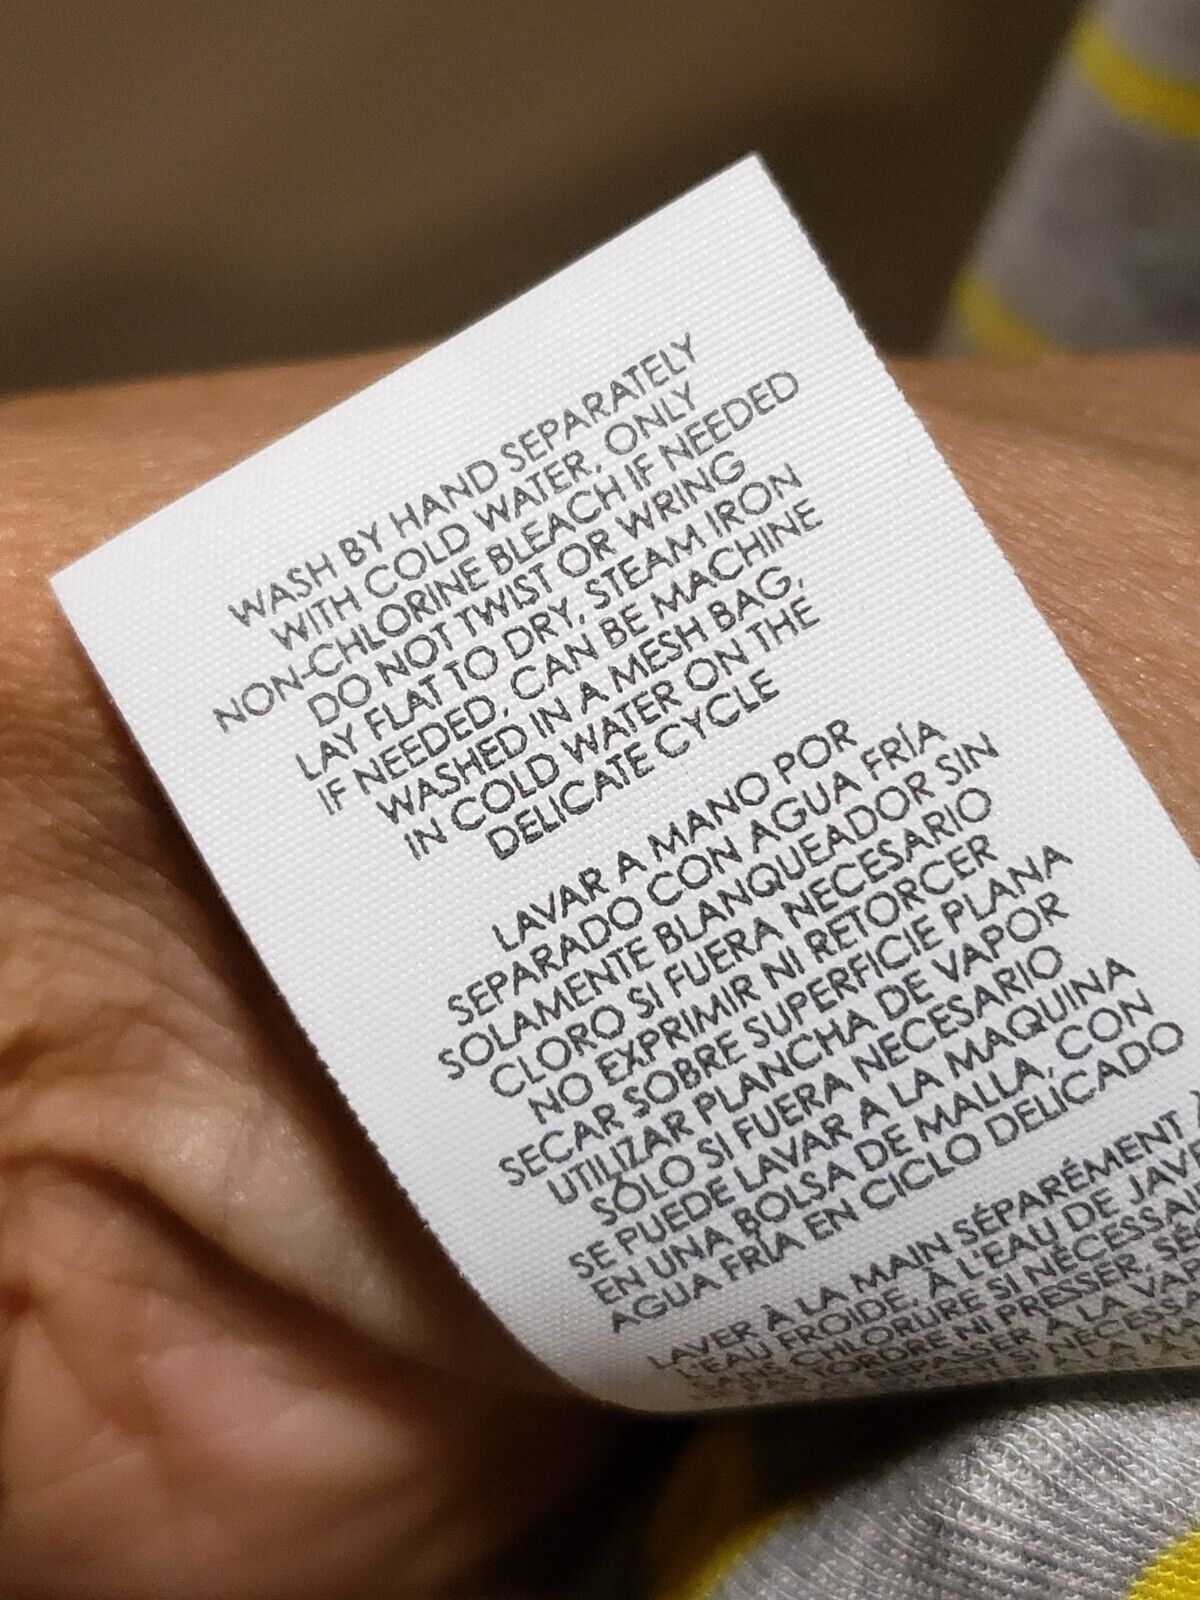 WASH BY HAND SEPARATELY
WITH COLD WATER, ONLY
NON-CHLORINE BLEACH IF NEEDED
DO NOT TWIST OR WRING
LAY FLAT TO DRY, STEAM IRON
IF NEEDED, CAN BE MACHINE
WASHED IN A MESH BAG,
IN COLD WATER ON THE
DELICATE CYCLE
LAVAR A MANO POR
SEPARADO CON AGUA FRÍA
SOLAMENTE BLANQUEADOR SIN
CLORO SI FUERA NECESARIO
NO EXPRIMIR NI RETORCER
SECAR SOBRE SUPERFICIE PLANA
UTILIZAR PLANCHA DE VAPOR
SÓLO SI FUERA NECESARIO
SE PUEDE LAVAR A LA MAQUINA
EN UNA BOLSA DE MALLA, CON
AGUA FRÍA EN CICLO DELICADO
LAVER À LA MAIN SÉPARÉMENT
L'EAU FROIDE, À L'EAU DE
SANS CHLORURE SI
TORDRE NI PRESSER,
À LA